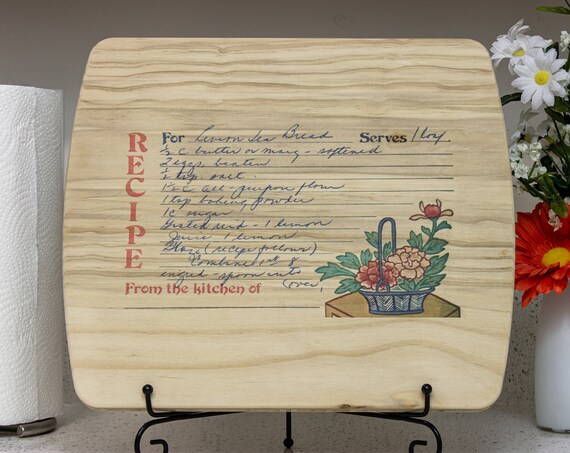 RECIPE
For Lemon Tea Bread Serves 1 loaf
½ c butter or marg - softened
2 eggs, beaten
½ tsp. salt
1½ c all-purpose flour
1 tsp baking powder
1 c sugar
Grated rind - 1 lemon
Juice 1 lemon
Glaze (recipe follows)
Combine 1st 8
ingred - spoon into
From the kitchen of (over)